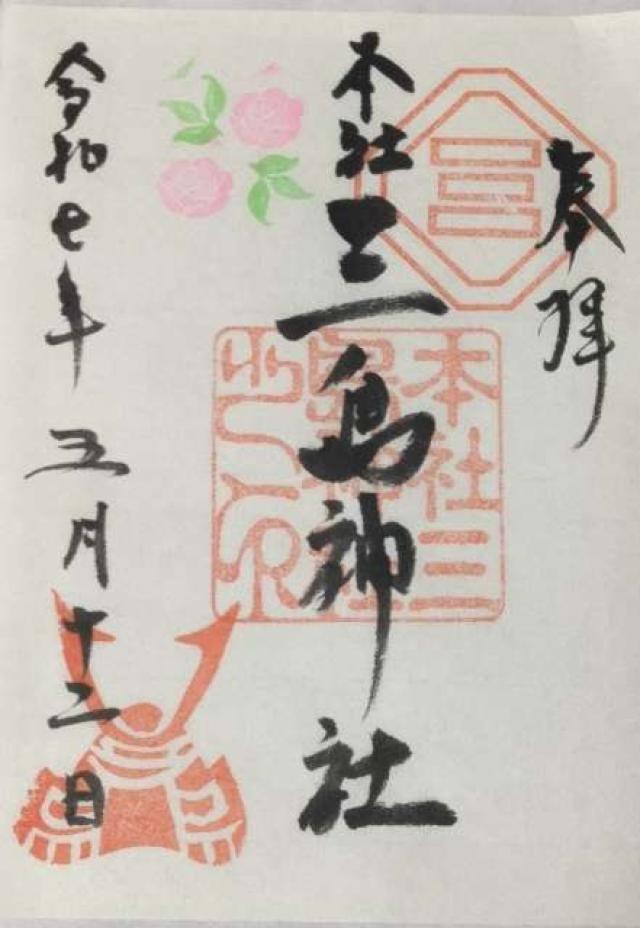 奉拝
本社三島神社
本社三島神社之印
令和七年五月十二日